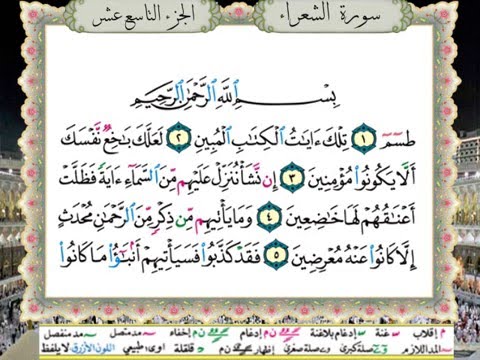 سورة الشعراء
الجزء التاسع عشر
بِسْمِ ٱللَّهِ ٱلرَّحْمَٰنِ ٱلرَّحِيمِ
طسٓمٓ ١ تِلْكَ ءَايَٰتُ ٱلْكِتَٰبِ ٱلْمُبِينِ ٢ لَعَلَّكَ بَٰخِعٌ نَّفْسَكَ
أَلَّا يَكُونُوا۟ مُؤْمِنِينَ ٣ إِن نَّشَأْ نُنَزِّلْ عَلَيْهِم مِّنَ ٱلسَّمَآءِ ءَايَةً فَظَلَّتْ
أَعْنَٰقُهُمْ لَهَا خَٰضِعِينَ ٤ وَمَا يَأْتِيهِم مِّن ذِكْرٍ مِّنَ ٱلرَّحْمَٰنِ مُحْدَثٍ
إِلَّا كَانُوا۟ عَنْهُ مُعْرِضِينَ ٥ فَقَدْ كَذَّبُوا۟ فَسَيَأْتِيهِمْ أَنۢبَٰٓؤُا۟ مَا كَانُوا۟
م إقلاب غنة إدغام بلاغنة ن م إدغام ن م إخفاء مد متصل مد منفصل
المد اللازم صلة كبرى صلة صغرى إظهار قلقلة اوى طبيعي اللون الأزرق لا يلفظ